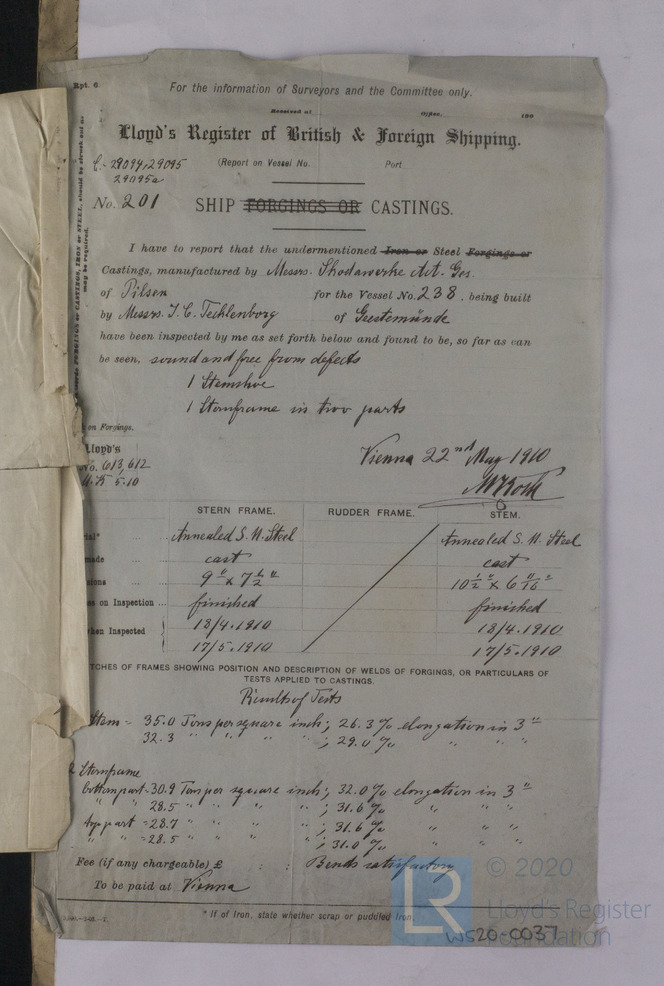 Rpt. 6.
For the information of Surveyors and the Committee only.
Received at Office, 190
Lloyd's Register of British & Foreign Shipping.
C.- 29094, 29095
29095a
(Report on Vessel No. Port
No. 201
SHIP FORGINGS OR CASTINGS.
FORGINGS or CASTINGS, IRON or STEEL, should be struck out as
may be required.
I have to report that the undermentioned Iron or Steel Forgings or
Castings, manufactured by Messrs. Skodawerke Act. Ges.
of Pilsen for the Vessel No. 238, being built
by Messrs. J. C. Tecklenborg of Geestemünde
have been inspected by me as set forth below and found to be, so far as can
be seen, sound and free from defects
1 Stemshoe
1 Sternframe in two parts
on Forgings.
Lloyd's
No. 613, 612
5.10
Vienna 22nd May 1910
STERN FRAME. RUDDER FRAME. STEM.
ial* Annealed S. M. Steel Annealed S. M. Steel
made cast cast
sions 9" x 7 1/2" 10 1/2" x 6 11/16"
es on Inspection ... finished finished
hen Inspected 18/4.1910 18/4.1910
17/5.1910 17/5.1910
TCHES OF FRAMES SHOWING POSITION AND DESCRIPTION OF WELDS OF FORGINGS, OR PARTICULARS OF
TESTS APPLIED TO CASTINGS.
Results of Tests
Stem = 35.0 Tons per square inch; 26.3% elongation in 3"
32.3 " " " " ; 29.0% " " "
Sternframe
bottom part = 30.9 Tons per square inch; 32.0% elongation in 3"
" " = 28.5 " " " " ; 31.6% " " "
top part = 28.7 " " " " ; 31.6% " " "
" " = 28.5 " " " " ; 31.0% " " "
Fee (if any chargeable) £ : : Bends satisfactory
To be paid at Vienna
* If of Iron, state whether scrap or puddled Iron.
© 2020
LR
Lloyd's Register
Foundation
WS20-0037